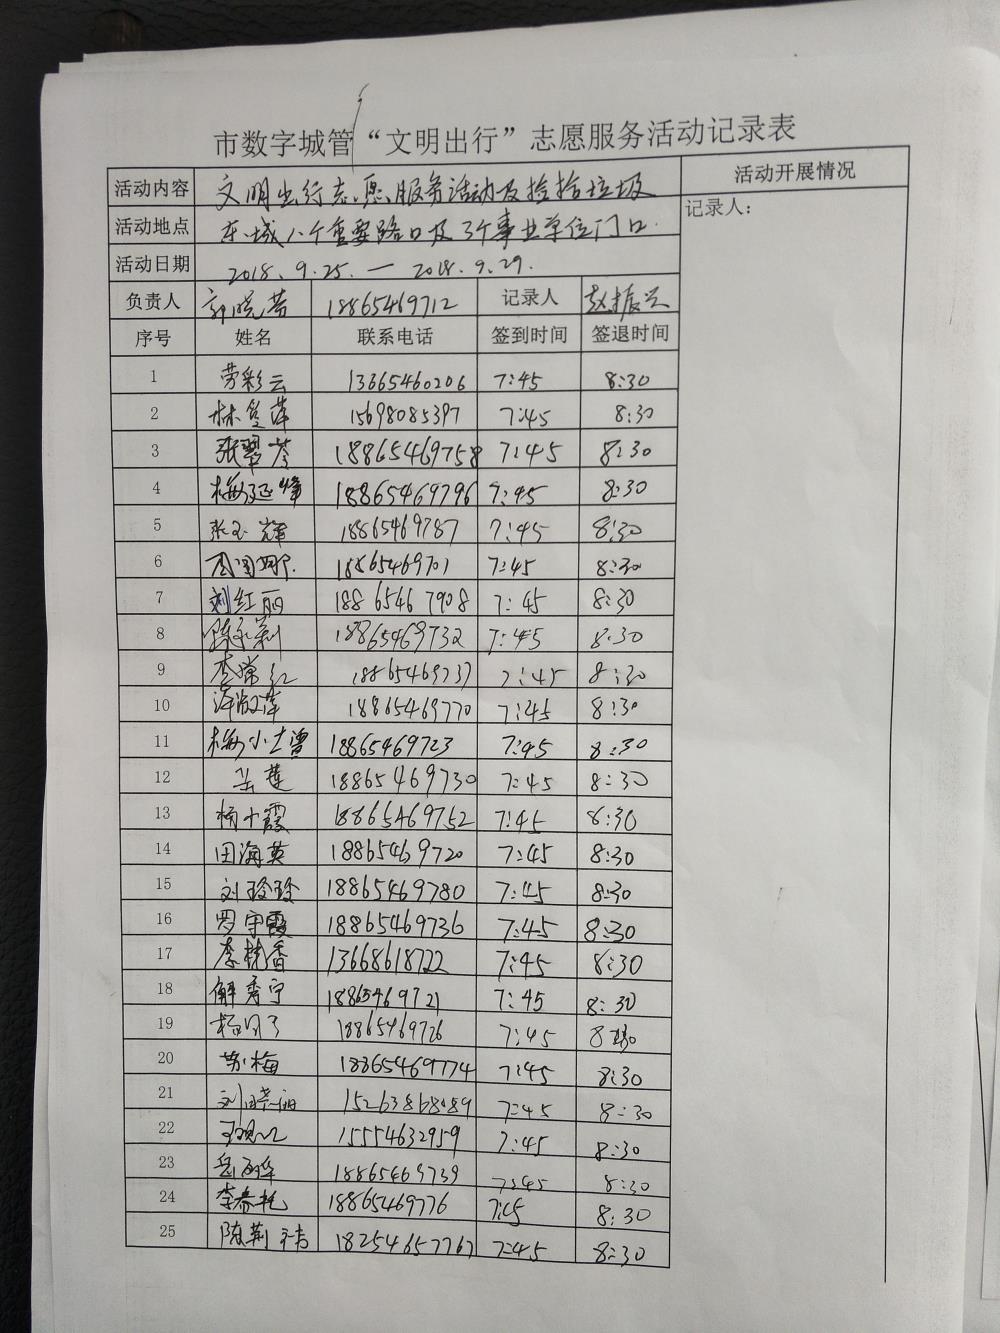 市数字城管“文明出行”志愿服务活动记录表
活动内容 文明出行志愿服务活动及捡拾垃圾 活动开展情况
活动地点 东城八个重要路口及3个事业单位门口. 记录人：
活动日期 2018.9.25.—2018.9.29.
负责人 郭晓芳 18865469712 记录人 赵振兴
序号 姓名 联系电话 签到时间 签退时间
1 劳彩云 13665460206 7:45 8:30
2 林 萍 15698085397 7:45 8:30
3 张翠芩 18865469758 7:45 8:30
4 梅延峰 18865469796 7:45 8:30
5 张玉辉 18865469787 7:45 8:30
6 周 娜 18865469701 7:45 8:30
7 刘红丽 188 6546 7908 7:45 8:30
8 陈 莉 18865469732 7:45 8:30
9 李常红 18865469737 7:45 8:30
10 萍 18865469770 7:45 8:30
11 梅小 18865469723 7:45 8:30
12 莲 18865469730 7:45 8:30
13 杨小霞 18865469752 7:45 8:30
14 田海英 18865469720 7:45 8:30
15 刘玲玲 18865469780 7:45 8:30
16 罗守霞 18865469736 7:45 8:30
17 李桂香 13668618722 7:45 8:30
18 解秀宁 18865469721 7:45 8:30
19 杨 18865469726 7:45 8:30
20 苏梅 18865469774 7:45 8:30
21 刘晓丽 15263868089 7:45 8:30
22 王 15554632959 7:45 8:30
23 岳 华 18865469739 7:45 8:30
24 李春艳 18865469776 7:45 8:30
25 陈荆 18254657767 7:45 8:30